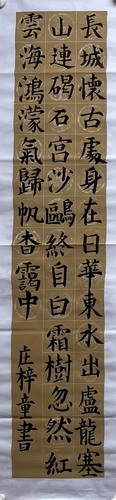 長城懷古處身在日華東水出盧龍塞
山連碣石宮沙鷗終自白霜樹忽然紅
雲海鴻濛氣歸帆杳靄中
庄梓童書